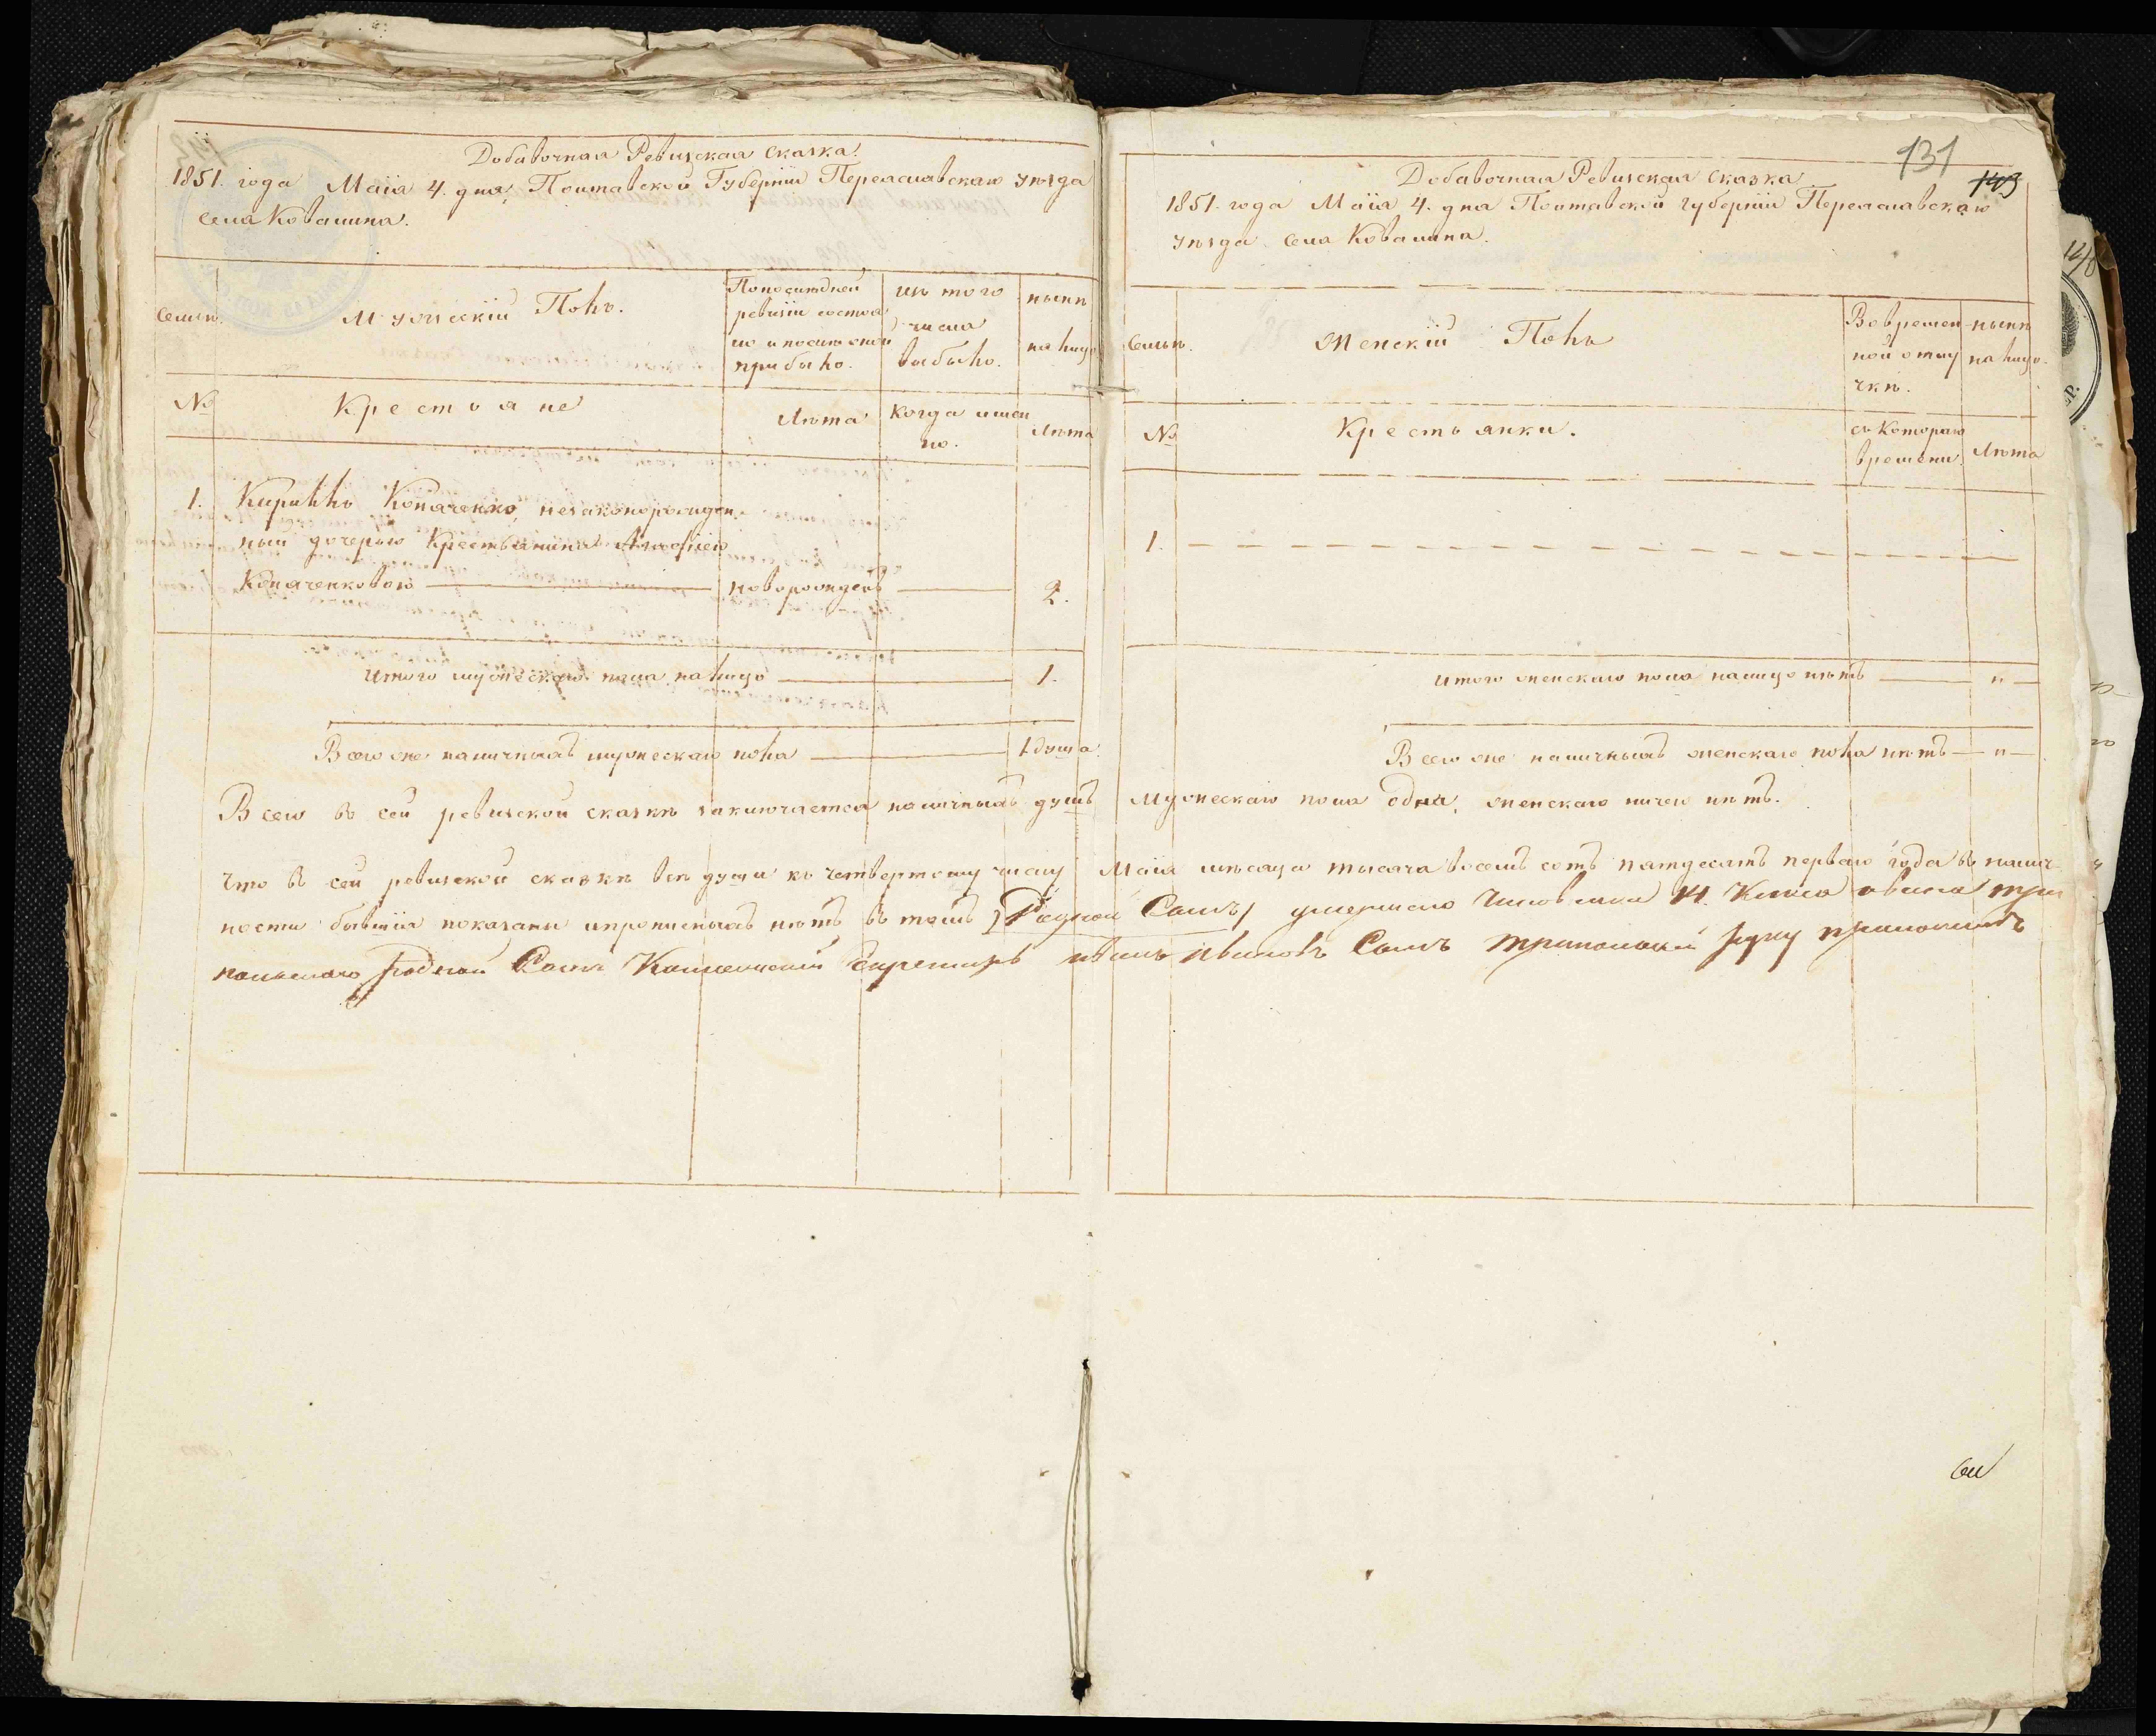 Добавочная Ревизская сказка.
1851. года Маiя 4. дня, Полтавской Губернiи Переяславскаго уѣзда
села Ковалина.
Семьи.
Мужескiй Полъ.
По последней
ревизiи состоя
ло и после оной
прибыло.
изъ того
числа
выбыло.
нынѣ
на лицо
№
Крестьяне
Лѣта
Когда имен
но.
Лѣта
1. Кирилло Копаченко, незаконорожден
ный дочерью Крестьянина
Копаченковою новорожденъ 2.
Итого мужескаго пола на лицо 1.
Всего же наличныхъ мужескаго пола 1 душа.
131
143
Добавочная Ревизская сказка
1851. года Маiя 4. дня Полтавской губернiи Переяславскаго
уѣзда села Ковалина.
Семьи.
Женскiй Полъ
Во времен
ной отлу
чкѣ.
нынѣ
на лицо.
№
Крестьянки.
съ Котораго
времени
Лѣта
1.
Итого женскаго пола налицо нѣтъ „
Всего же наличныхъ женскаго пола нѣтъ „
Всего въ сей ревизской сказкѣ заключается наличныхъ душъ мужескаго пола одна, женскаго ничего нѣтъ.
Что въ сей ревизской сказкѣ всѣ души къ четвертому числу Маiя мѣсяца тысяча восемь сотъ пятдесятъ перваго года въ налич
ности бывшiя показаны и прописныхъ нѣтъ въ томъ Родной Сынъ умершаго Чиновника 14. Класа ивана трип
польскаго родной Сынъ Колежскiй Секретарь иванъ ивановъ Сынъ трипольскiй руку приложилъ